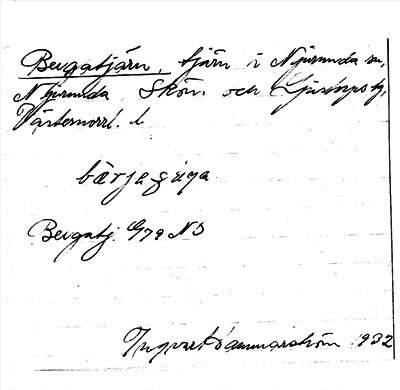 Bergatjärn, tjärn i Njurunda sn,
Njurunda Skön. och Ljustorps tg,
Västernorrl. l.
Bergatj. G79 NO
Ingvart Hammarström 1932